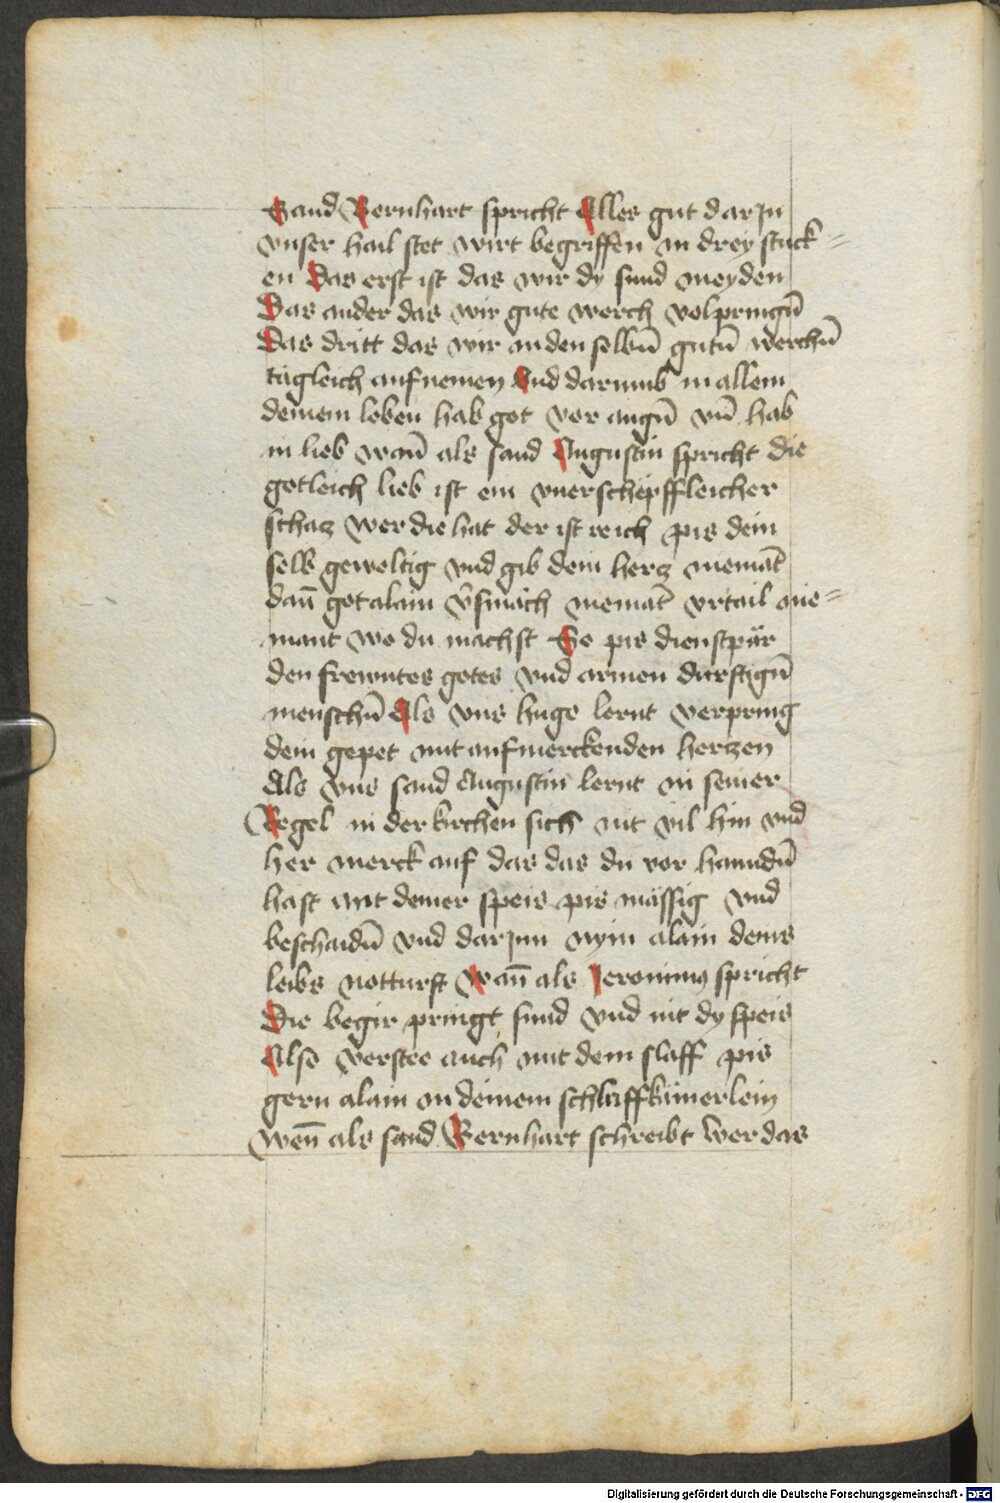 Sand Bernhart spricht Alles gut dar Jn
vnser hail stet wirt begriffen in drey stuck=
en Das erst ist das wir dy sund meyden
Das ander das wir gute werch volpringn̄
Das dritt das wir an den selbn̄ gutn̄ werchn̄
tägleich aufnemen Vnd darumb in allem
deinem leben hab got vor augn̄ vn̄ hab
in lieb wan̄ als sand Augustin spricht die
gotleich lieb ist ein vnerschepffleicher
schacz wer die hat der ist reich pis dein
selb geweltig vnd gib dein hercz niemāt
dan̄ got alain v̄smäch niemāt vrtail nie=
mant wo du machst So pis dienstpär
den frewntes gotes vnd armen dürftign̄
menschn̄ Als vns hugo lernt verpring
dein gepet mit aufmerckenden herczen
Als vns sand Augustin lernt in seiner
Regel in der kirchen sich nit vil hin vnd
her merck auf das das du vor hanndn̄
hast mit deiner speis pis mässig vnd
beschaidn̄ vnd dar jnn nym alain deins
leibs notturft Wan̄ als Jeronimus spricht
Die begir pringt sund vnd nit dy speis
Also verstee auch mit dem slaff pis
gern alain an deinem schlaffkämerlein
wen̄ als sand Bernhart schreibt wer das
Digitalisierung gefördert durch die Deutsche Forschungsgemeinschaft - DFG